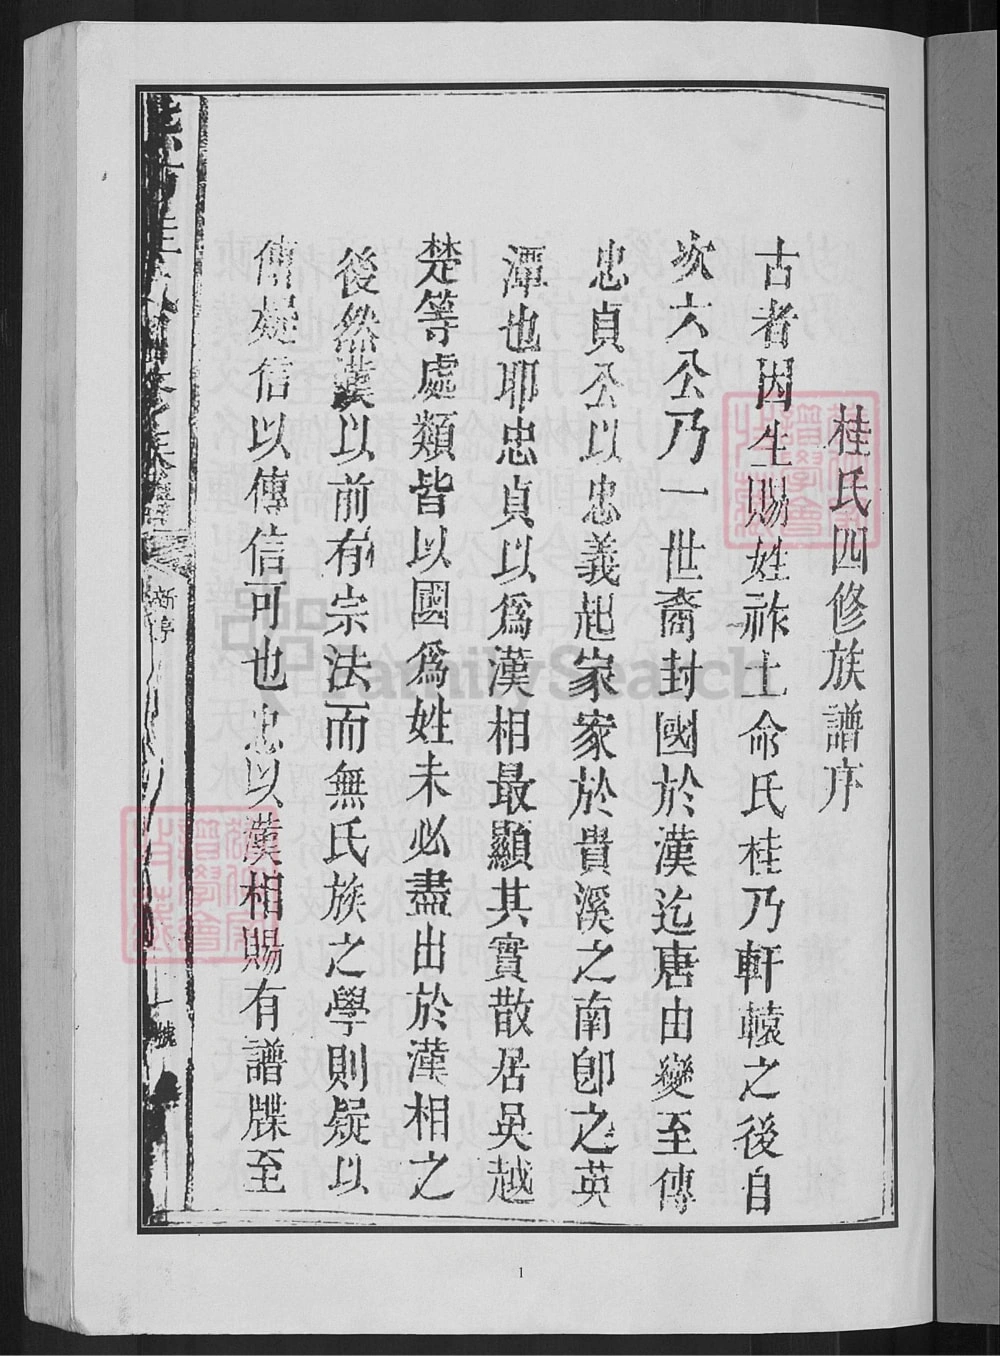 桂氏四修族譜序
古者因生賜姓祚土命氏桂乃軒轅之後自
炎六公乃一世裔封國於漢迄唐由變至傳
忠貞公以忠義起家家於貴溪之南卽之英
潭也耶忠貞以爲漢相最顯其實散居吳越
楚等處類皆以國爲姓未必盡出於漢相之
後然漢以前有宗法而無氏族之學則疑以
傳疑信以傳信可也忠以漢相賜有譜牒至
新序
一號
FamilySearch
1